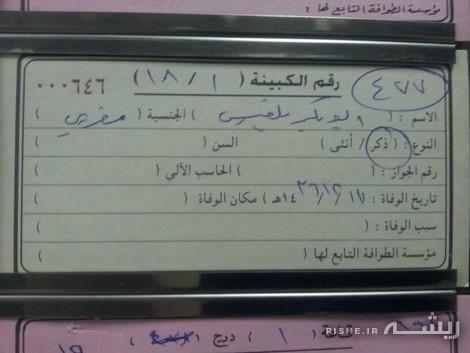 مؤسسة الطوافة التابع لها : (
٤٧٧ رقم الكبينة ( ١ / ١٨ ) ٠٠٠٦٤٦
الاسم : ( ) الجنسية ( مغربي )
النوع : ( ذكر / أنثى ) السن ( )
رقم الجواز : ( ) الحاسب الآلي ( )
تاريخ الوفاة : ( ١٤٣٦/١٢/١١هـ ) مكان الوفاة ( )
سبب الوفاة : ( )
مؤسسة الطوافة التابع لها ( )
( ١ ) درج (
ریشه
RISHE.IR